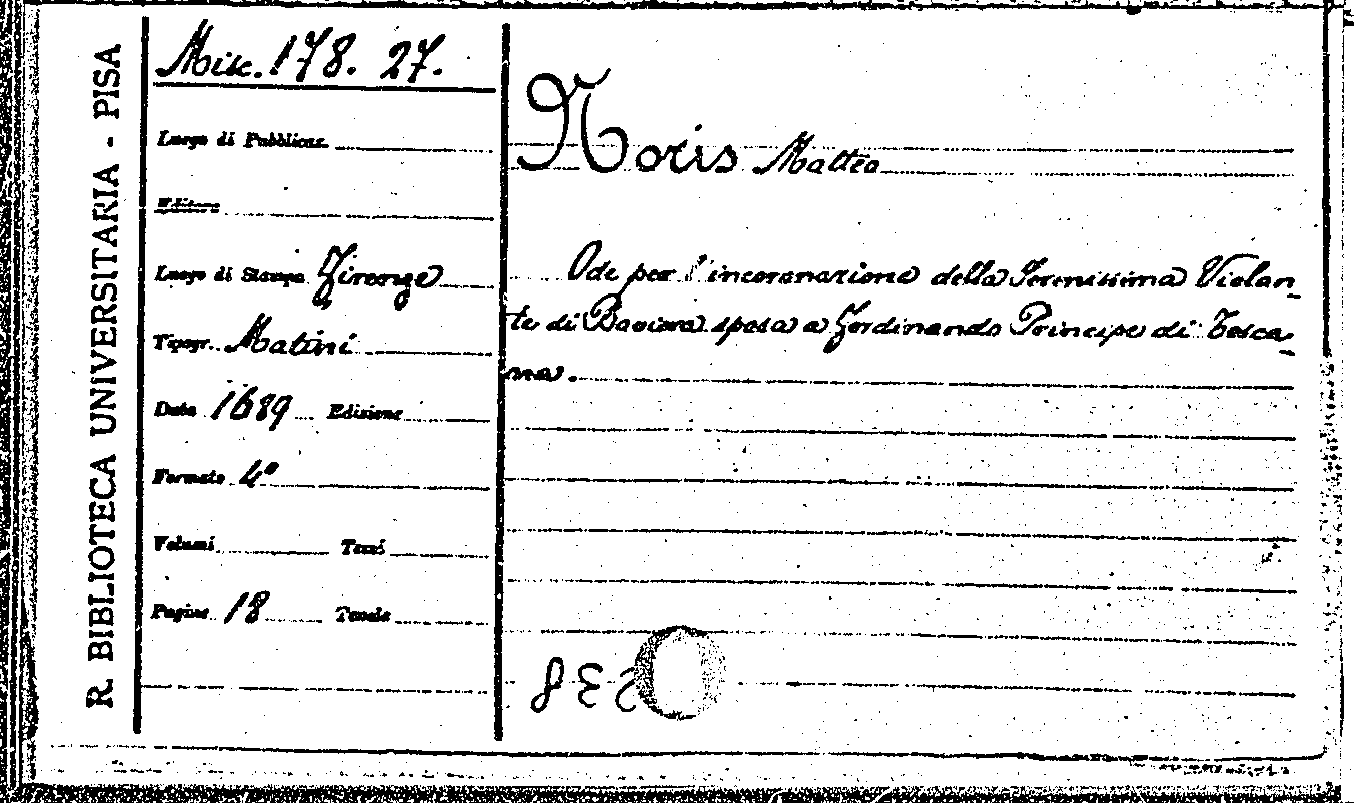 R. BIBLIOTECA UNIVERSITARIA - PISA
Misc. 178. 27.
Luogo di Pubblicaz.
Editore
Luogo di Stampa Firenze
Tipogr. Matini
Data 1689 Edizione
Formato 4°
Volumi Tomi
Pagine 18 Tavole
Noris Matteo
Ode per l'incoronazione della Serenissima Violan-
te di Baviera sposa a Ferdinando Principe di Tosca-
na.